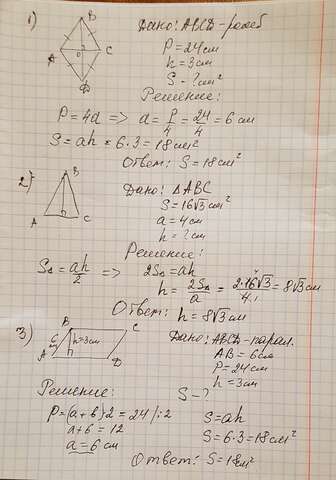 1) B
A O C
D
Дано: ABCD - ромб
P = 24 см
h = 3 см
S - ? см²
Решение:
P = 4a => a = P/4 = 24/4 = 6 см
S = ah = 6·3 = 18 см²
Ответ: S = 18 см²
2) B
A C
Дано: △ABC
S = 16√3 см²
a = 4 см
h = ? см
Решение:
S△ = ah/2 => 2S△ = ah
h = 2S△/a = 2·16√3/4 = 8√3 см
Ответ: h = 8√3 см
3) B C
h=3см
A D
Дано: ABCD - парал.
AB = 6 см
P = 24 см
h = 3 см
S - ?
Решение:
P = (a + b)·2 = 24 /:2
a + b = 12
a = 6 см
S = ah
S = 6·3 = 18 см²
Ответ: S = 18 см²